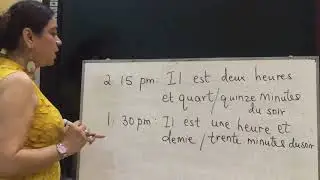 2 15 pm: Il est deux heures
et quart/quinze minutes
du soir
1, 30 pm: Il est une heure et
demie/trente minutes du soir